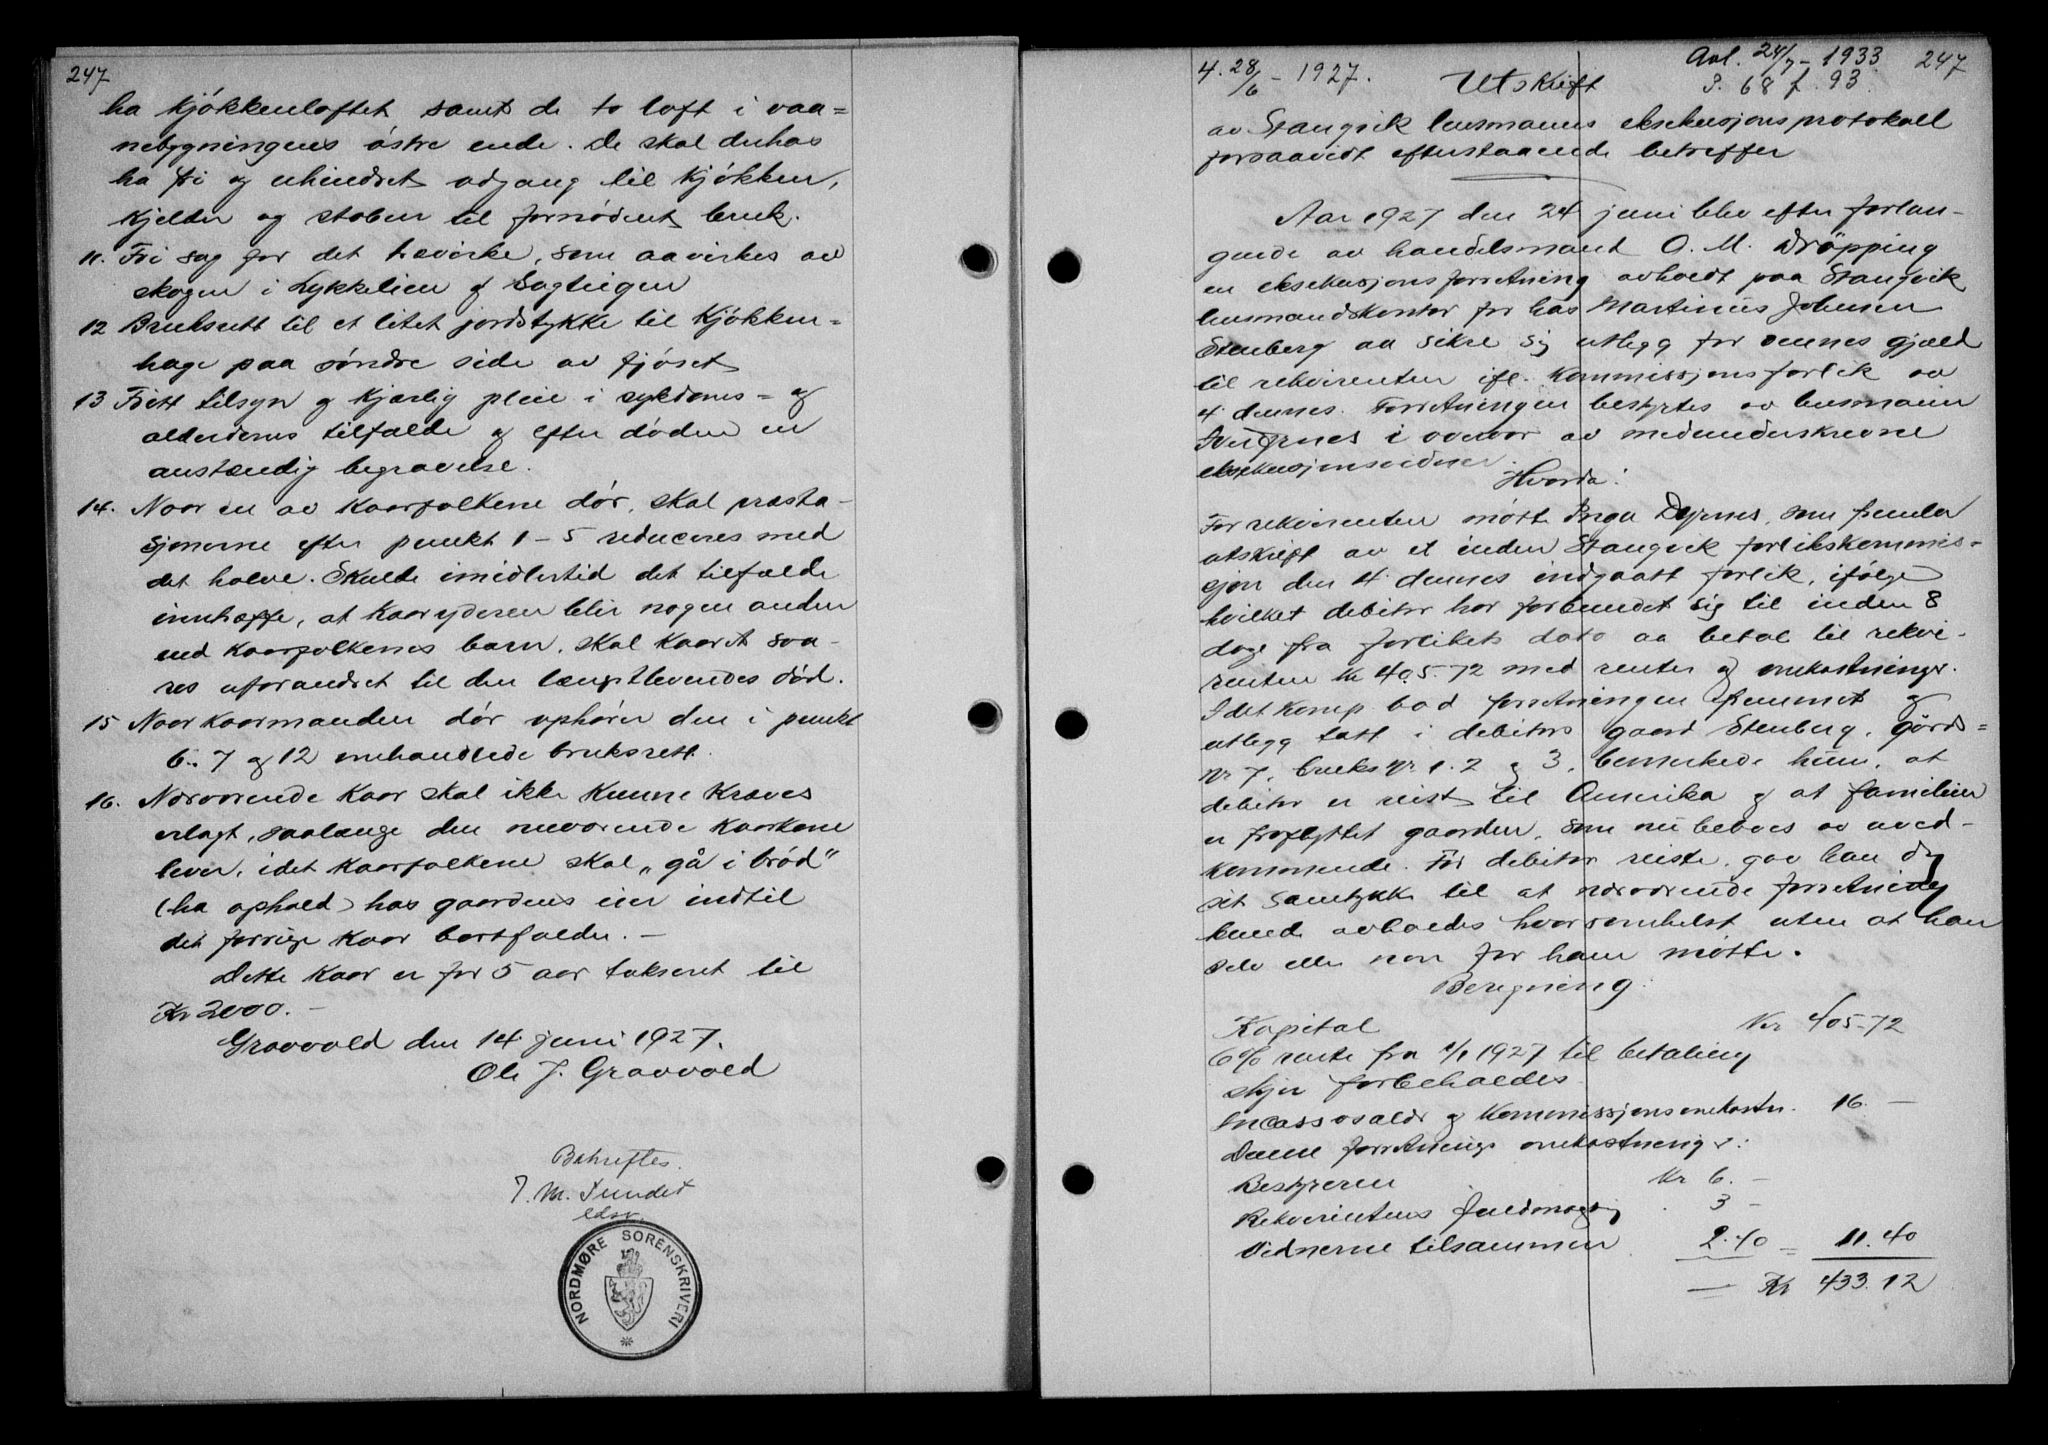 247
ha kjøkkenloftet samt de to loft i vaa=
nebygningens østre ende. De skal derhos
ha fri og uhindret adgang til kjøkken,
kjelder og stoben til fornødent bruk.
11. Fri sag for det trævirke, som aavirkes av
skogen i Lykkelien og Sagteigen
12 Bruksrett til et litet jordstykke til kjøkken=
hage paa søndre side av fjøset
13 Frit tilsyn og kjærlig pleie i sykdoms= og
alderdoms tilfælde og efter døden en
anstændig begravelse.
14. Naar en av kaarfolkene dør, skal præsta-
sjonerne efter punkt 1-5 reduceres med
det halve. Skulde imidlertid det tilfælde
inntræffe, at kaaryderen blir nogen anden
end kaarfolkenes barn, skal kaaret sva-
res uforandret til den længstlevendes død.
15 Naar kaarmanden dør ophører den i punkt
6. 7 og 12 omhandlede bruksrett.
16. Nærværende kaar skal ikke kunne kræves
erlagt, saalænge den nuværende kaarkone
lever, idet kaarfolkene skal „gå i brød"
(ha ophold) hos gaardens eier indtil
det forrige kaar bortfalder. -
Dette kaar er for 5 aar takseret til
Kr 2000. -
Graavold den 14 juni 1927.
Ole J. Graavold
Bekreftes.
J. M. Sundet
edsv.
NORDMØRE SORENSKRIVERI
4. 28/6 - 1927.
Avl. 24/7 - 1933
247
Utskrift
P. 68 f. 93.
av Stangvik lensmanns eksekusjonsprotokoll
forsaavidt efterstaaende betreffer
Aar 1927 den 24 juni blev efter forlan-
gende av handelsmand O. M. Drøpping
en eksekusjonsforretning avholdt paa Stangvik
lensmandskontor for hos Martinus Johnsen
Stenberg aa sikre sig utlegg for dennes gjæld
til rekvirenten ifl. kommissjonsforlik av
4 dennes. Forretningen bestyrtes av lensmann
i overvær av medunderskrevne
eksekusjonsvidner.
Hvorda:
For rekvirenten møtte Inga Dyrnes, som fremla
utskrift av et inden Stangvik forlikskommis-
sjon den 4 dennes indgaatt forlik, ifølge
hvilket debitor har forbundet sig til inden 8
dage fra forlikets dato aa betal til rekvi-
renten kr 405.72 med renter og omkostninger.
I det komp. bad forretningen fremmet og
utlegg tatt i debitors gaard Stenberg, gårds=
nr 7, bruks nr 1. 2 og 3, bemerkede hun, at
debitor er reist til Amerika og at familien
er fraflyttet gaarden, som nu beboes av uved-
kommende. Før debitor reiste, gav han og
sit samtykke til at nærværende forretning
kunde avholdes hvorsomhelst uten at han
selv eller non for ham møtte.
Beregning:
Kapital Kr 405-72
6% rente fra 1/1 1927 til betaling
skjer forbeholdes
Incassosalær og kommissjonsomkostn. 16. -
Denne forretnings omkostninger:
Bestyreren Kr 6. -
Rekvirentens fuldmægtig 3 -
Vidnerne tilsammen 2.40 = 11.40
- Kr 433.12